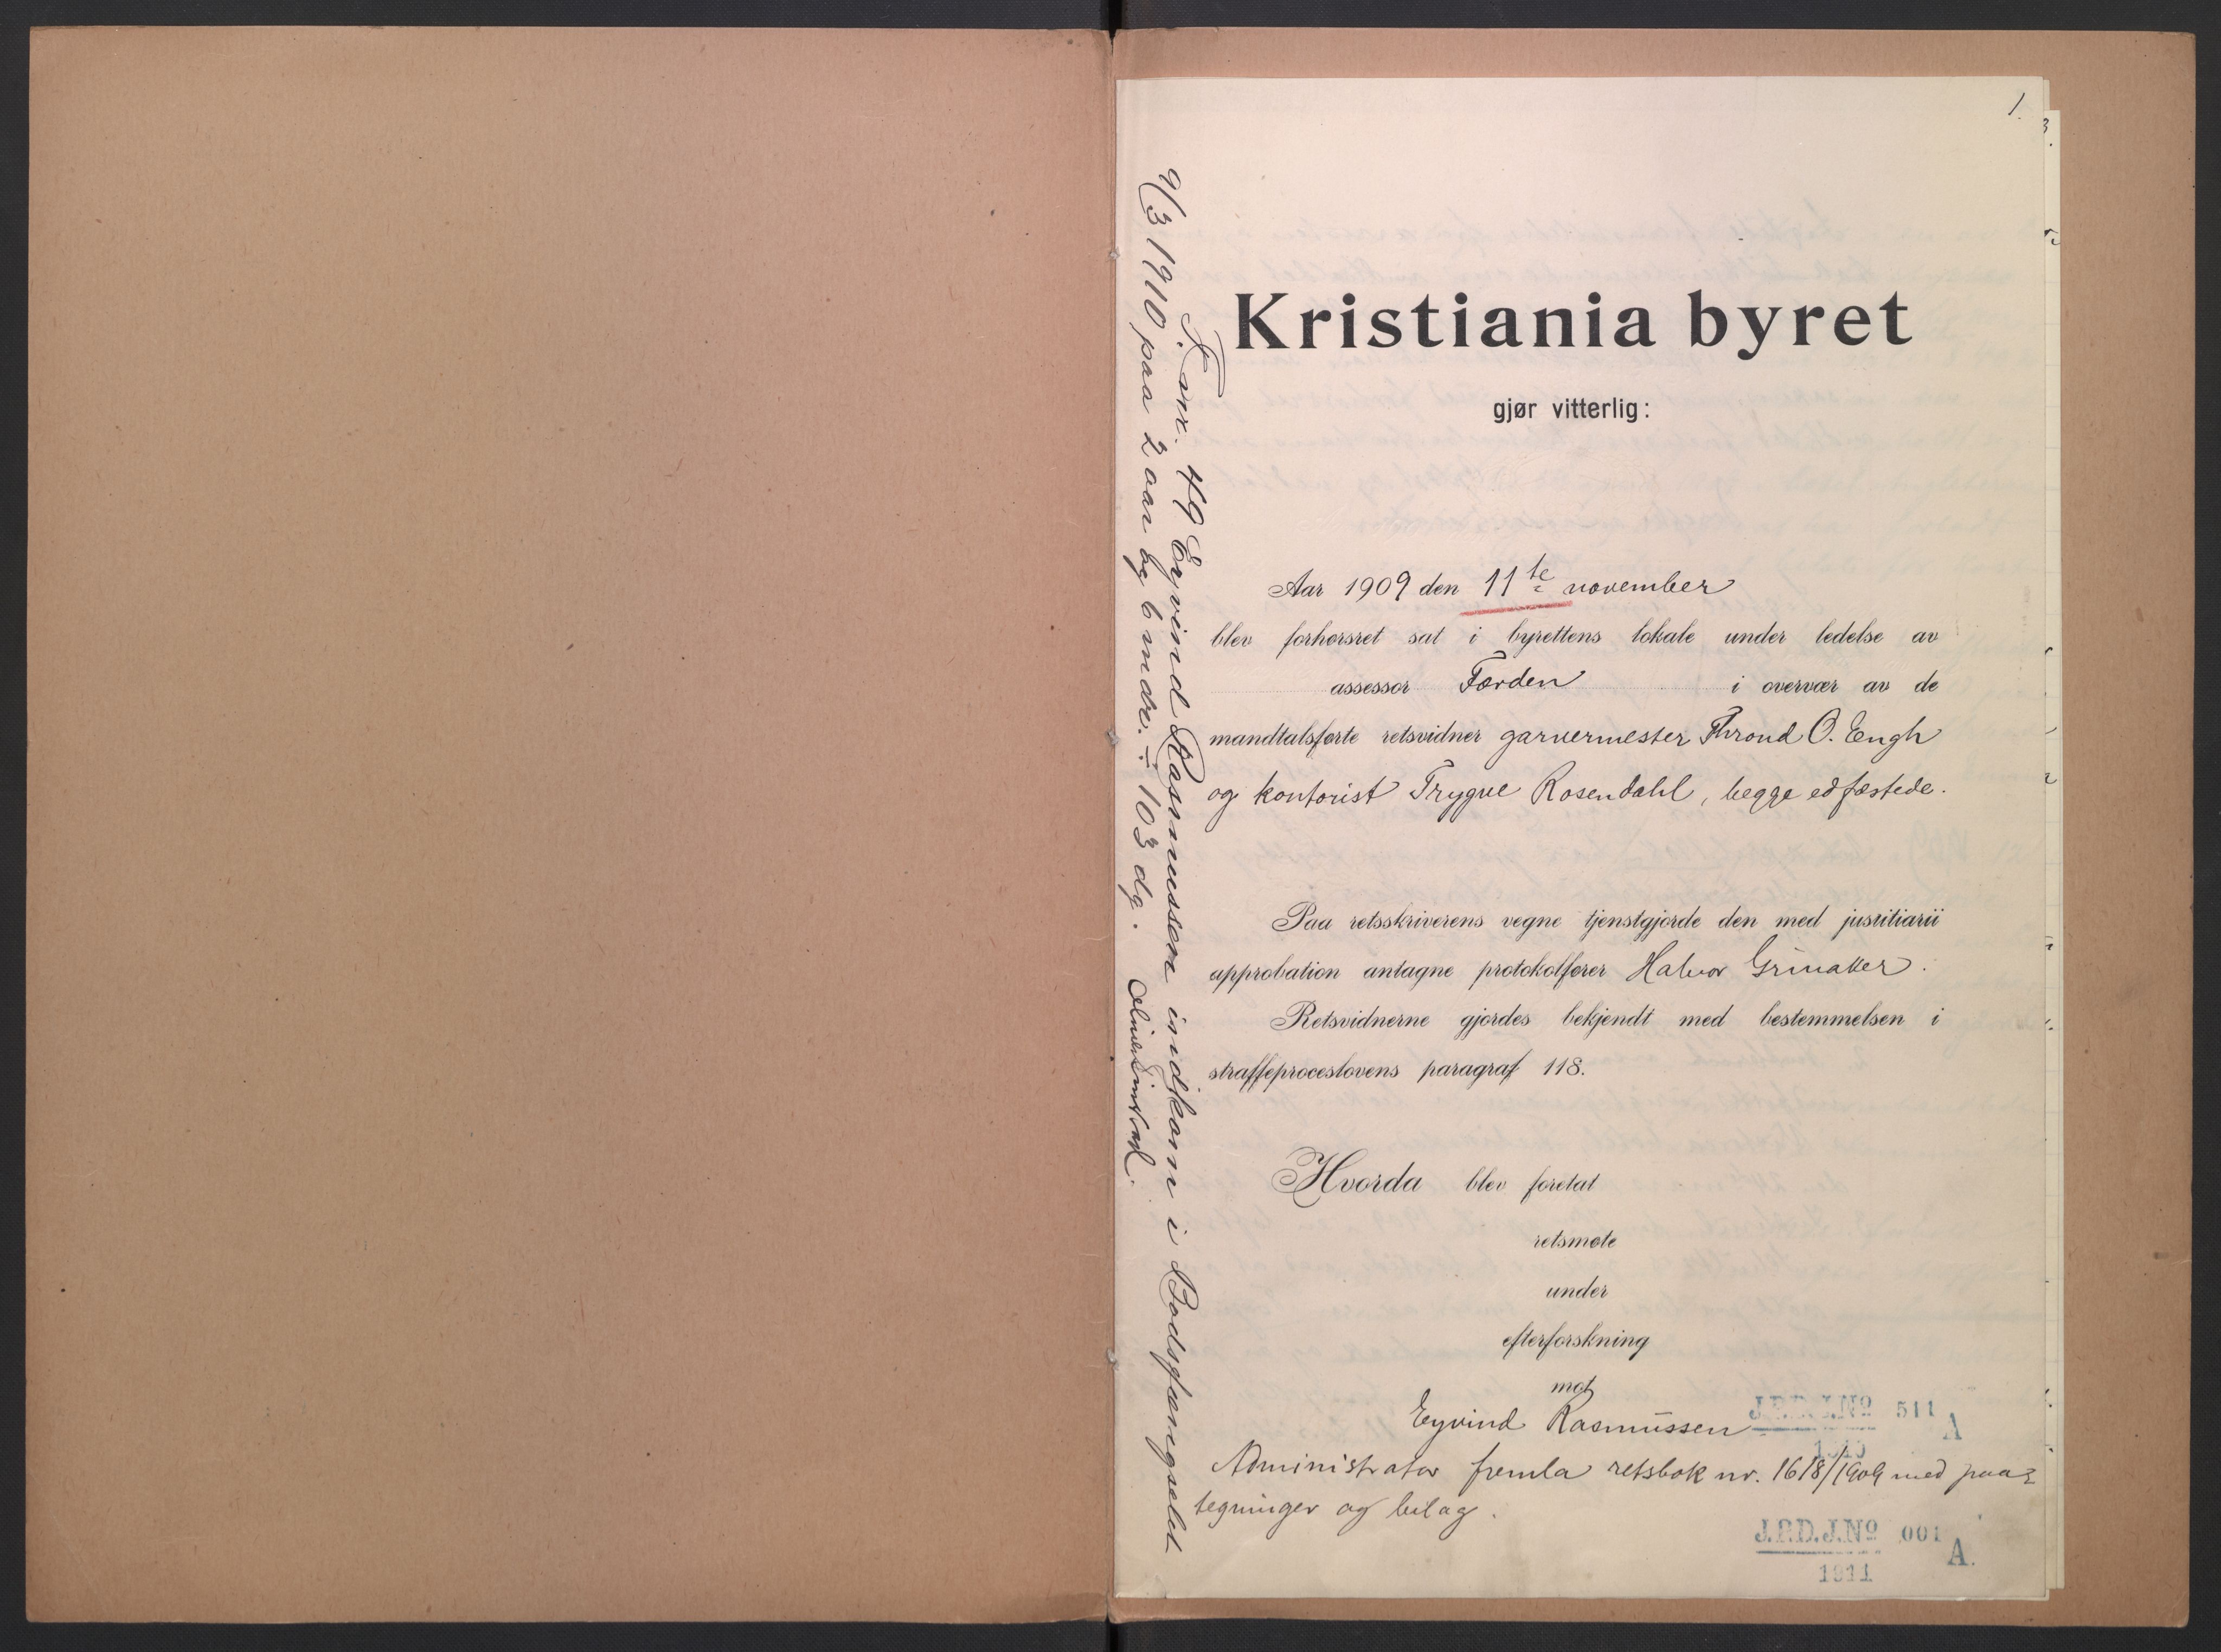 1.
Kristiania byret
gjør vitterlig:
Aar 1909 den 11te november
blev forhørsret sat i byrettens lokale under ledelse av
assessor Førden i overvær av de
mandtalsførte retsvidner garvermester Thrond O. Engh
og kontorist Trygve Rosendahl, begge edfæstede.
Paa retsskriverens vegne tjenstgjorde den med justitiarii
approbation antagne protokolfører Halvor Grinaker.
Retsvidnerne gjordes bekjendt med bestemmelsen i
straffeproceslovens paragraf 118.
Hvorda blev foretat
retsmøte
under
efterforskning
mot
Eyvind Rasmussen
J.P.D. J.Nº 511 A
1910
Administrator fremla retsbok nr. 1618/1909 med paa=
tegninger og bilag.
J.P.D.J.Nº 001 A.
1911
F. nr. 49 Eyvind Rasmussen indkom i Bodsfængselet
9/3 1910 paa 2 aar og 6 mdr. ÷ 103 dg.